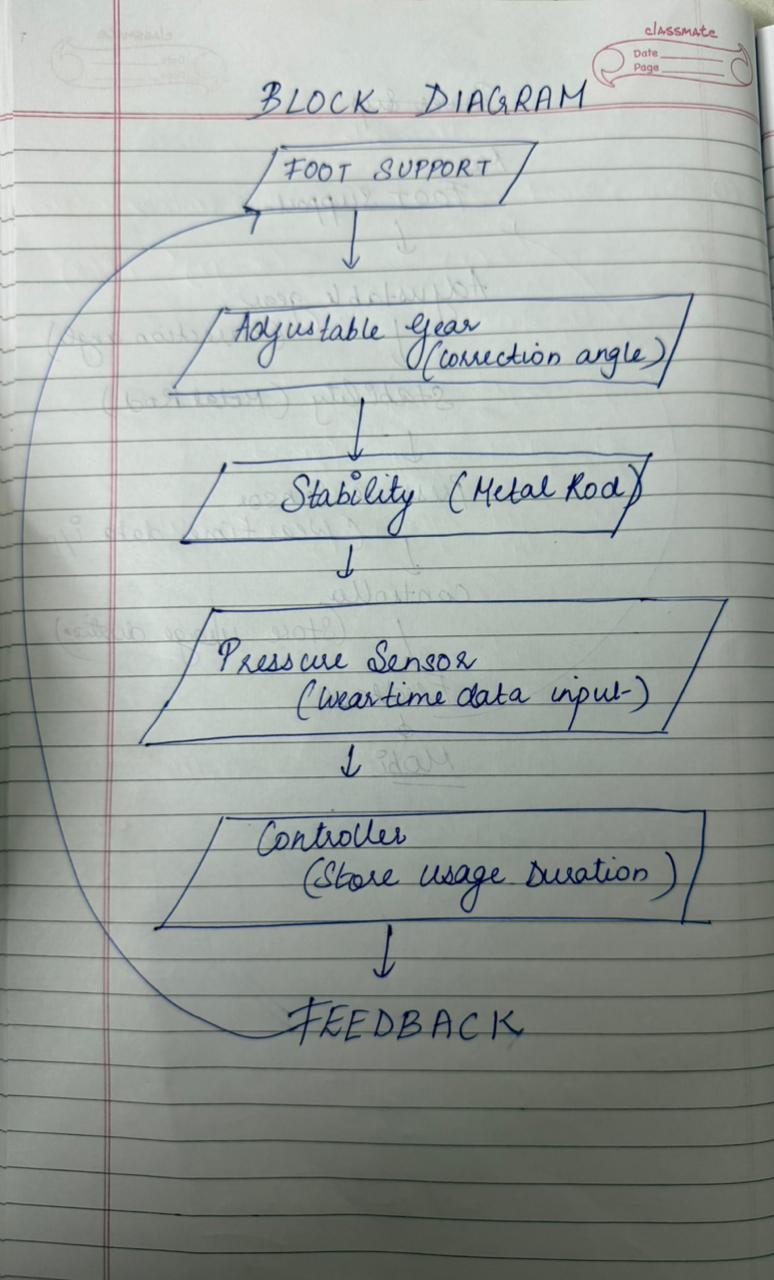 classmate
Date
Page
BLOCK DIAGRAM
FOOT SUPPORT
Adjustable Gear
(correction angle)
Stability (Metal Rod)
Pressure Sensor
(wear time data input)
Controller
(Store Usage Duration)
FEEDBACK